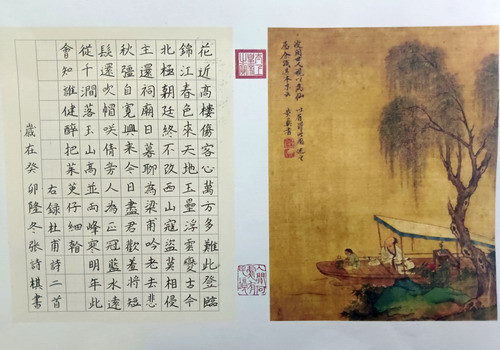 花近高樓傷客心萬方多難此登臨
錦江春色來天地玉壘浮雲變古今
北極朝廷終不改西山寇盜莫相侵
主還祠廟日暮聊為梁甫吟老去悲
秋彊自寬興來今日盡君歡羞將短
髮還吹帽笑倩旁人為正冠藍水遠
從千澗落玉山高並兩峰寒明年此
會知誰健醉把茱萸仔細看
右錄杜甫詩二首
歲在癸卯隆冬張詩棋書